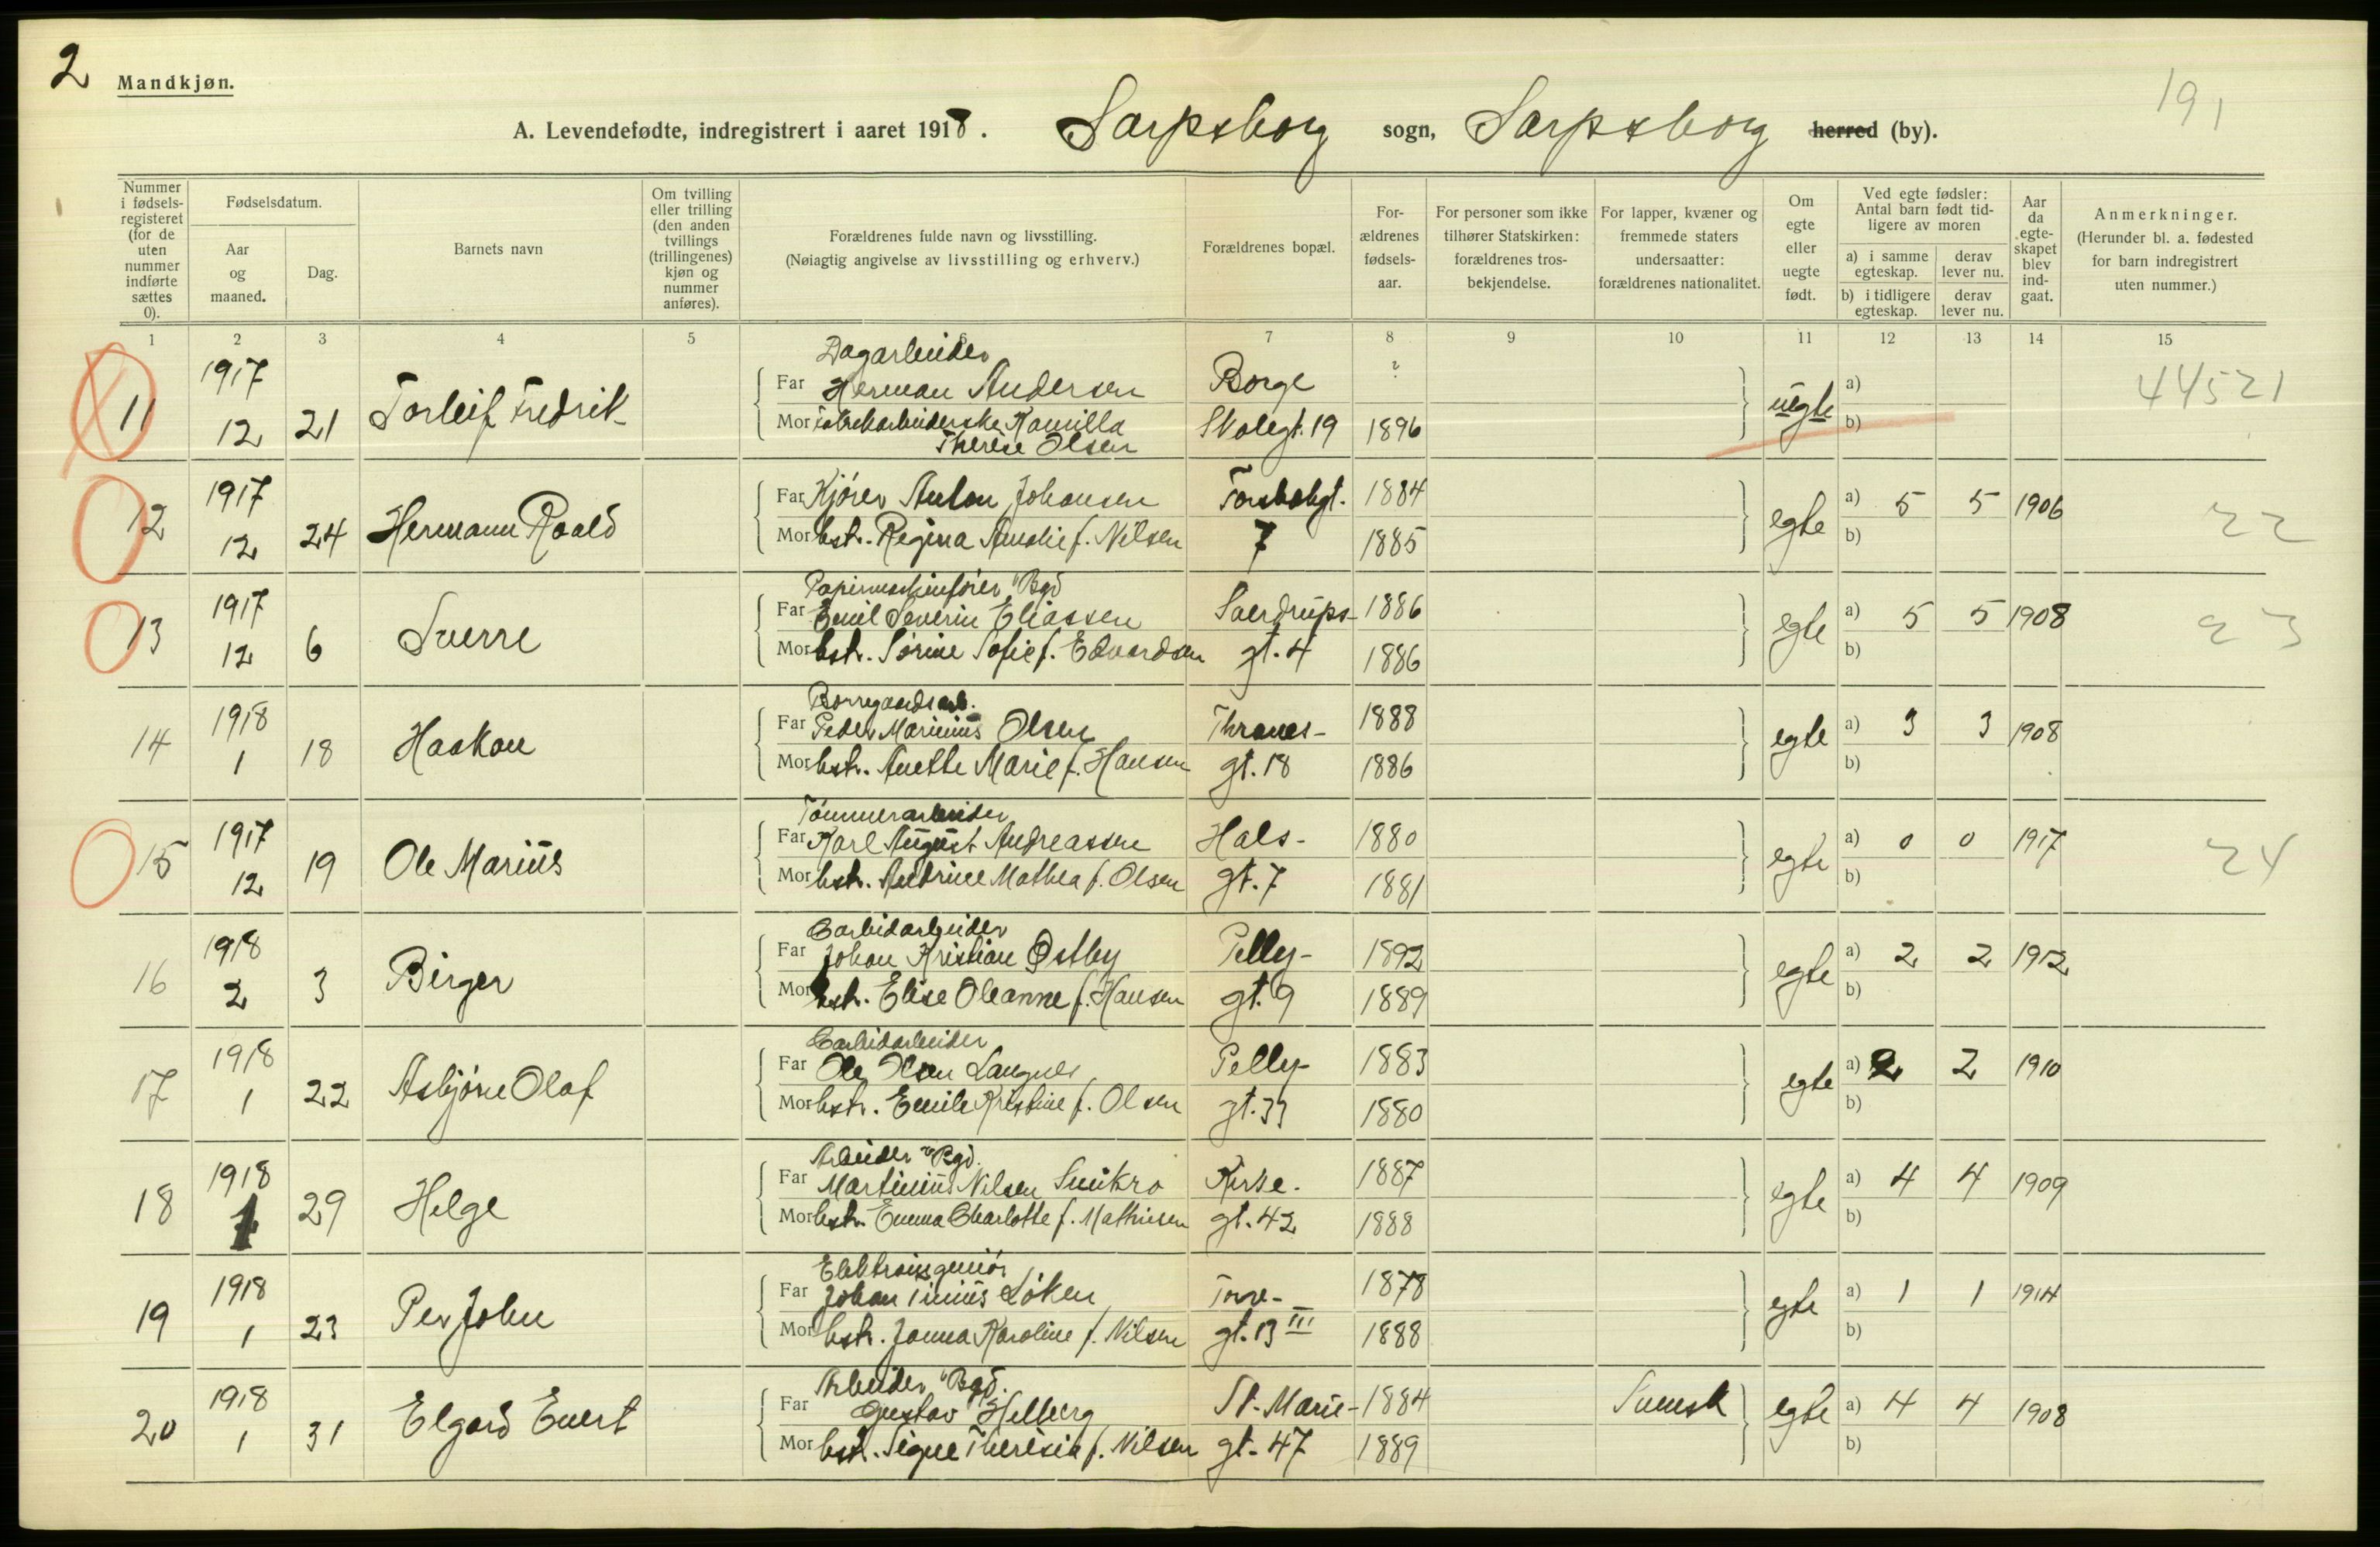 2
Mandkjøn.
191
A. Levendefødte, indregistrert i aaret 1918. Sarpsborg sogn, Sarpsborg herred (by).
Nummer i fødsels-registeret (for de uten nummer indførte sættes 0).
Fødselsdatum.
Aar og maaned.
Dag.
Barnets navn
Om tvilling eller trilling (den anden tvillings (trillingenes) kjøn og nummer anføres).
Forældrenes fulde navn og livsstilling.
(Nøiagtig angivelse av livsstilling og erhverv.)
Forældrenes bopæl.
For-ældrenes fødsels-aar.
For personer som ikke tilhører Statskirken: forældrenes tros-bekjendelse.
For lapper, kvæner og fremmede staters undersaatter: forældrenes nationalitet.
Om egte eller uegte født.
Ved egte fødsler: Antal barn født tid-ligere av moren
a) i samme egteskap.
derav lever nu.
b) i tidligere egteskap.
derav lever nu.
Aar da egte-skapet blev ind-gaat.
Anmerkninger.
(Herunder bl. a. fødested for barn indregistrert uten nummer.)
1 2 3 4 5 6 7 8 9 10 11 12 13 14 15
Dagarbeider
11 1917 12 21 Torleif Fredrik
Far Herman Andersen Borge ?
Mor Fabrikarbeiderske Kamilla Skolegt. 19 1896
Therese Olsen
uegte a) b) 44521
12 1917 12 24 Hermann Roald
Far Kjører Anton Johansen Torsbekgt. 1884
Mor hstr. Regina Amalie f. Nilsen 7 1885
egte a) 5 5 1906 b) 22
Papirmaskinfører "Bgd
13 1917 12 6 Sverre
Far Emil Severin Eliassen Sverdrups- 1886
Mor hstr. Sörine Sofie f. Edvardsen gt. 4 1886
egte a) 5 5 1908 b) 23
Borregaardsarb.
14 1918 1 18 Haakon
Far Peder Marinius Olsen Thranes- 1888
Mor hstr. Anette Marie f. Hansen gt. 18 1886
egte a) 3 3 1908 b)
Tømmerarbeider
15 1917 12 19 Ole Marius
Far Karl August Andreassen Hals- 1880
Mor hstr. Andrine Mathea f. Olsen gt. 7 1881
egte a) 0 0 1917 b) 24
Carbidarbeider
16 1918 2 3 Birger
Far Johan Kristian Østby Pelly- 1892
Mor hstr. Elise Oleanne f. Hansen gt. 9 1889
egte a) 2 2 1912 b)
Carbidarbeider
17 1918 1 22 Asbjørn Olaf
Far Ole Olsen Langnes Pelly- 1883
Mor hstr. Emile Kristine f. Olsen gt. 33 1880
egte a) 2 2 1910 b)
Arbeider "Bgd.
18 1918 1 29 Helge
Far Martinius Nilsen Smikro Kirke- 1887
Mor hstr. Emma Charlotte f. Mathiesen gt. 42 1888
egte a) 4 4 1909 b)
Elektroingeniør
19 1918 1 23 Per John
Far Johan Løken Torve- 1878
Mor hstr. Janna Karoline f. Nilsen gt. 13 III 1888
egte a) 1 1 1914 b)
Arbeider "Bgd.
20 1918 1 31 Elgard Evert
Far Gustav Hellberg St. Marie- 1884 Svensk
Mor hstr. Signe Theresia f. Nilsen gt. 47 1889
egte a) 4 4 1908 b)